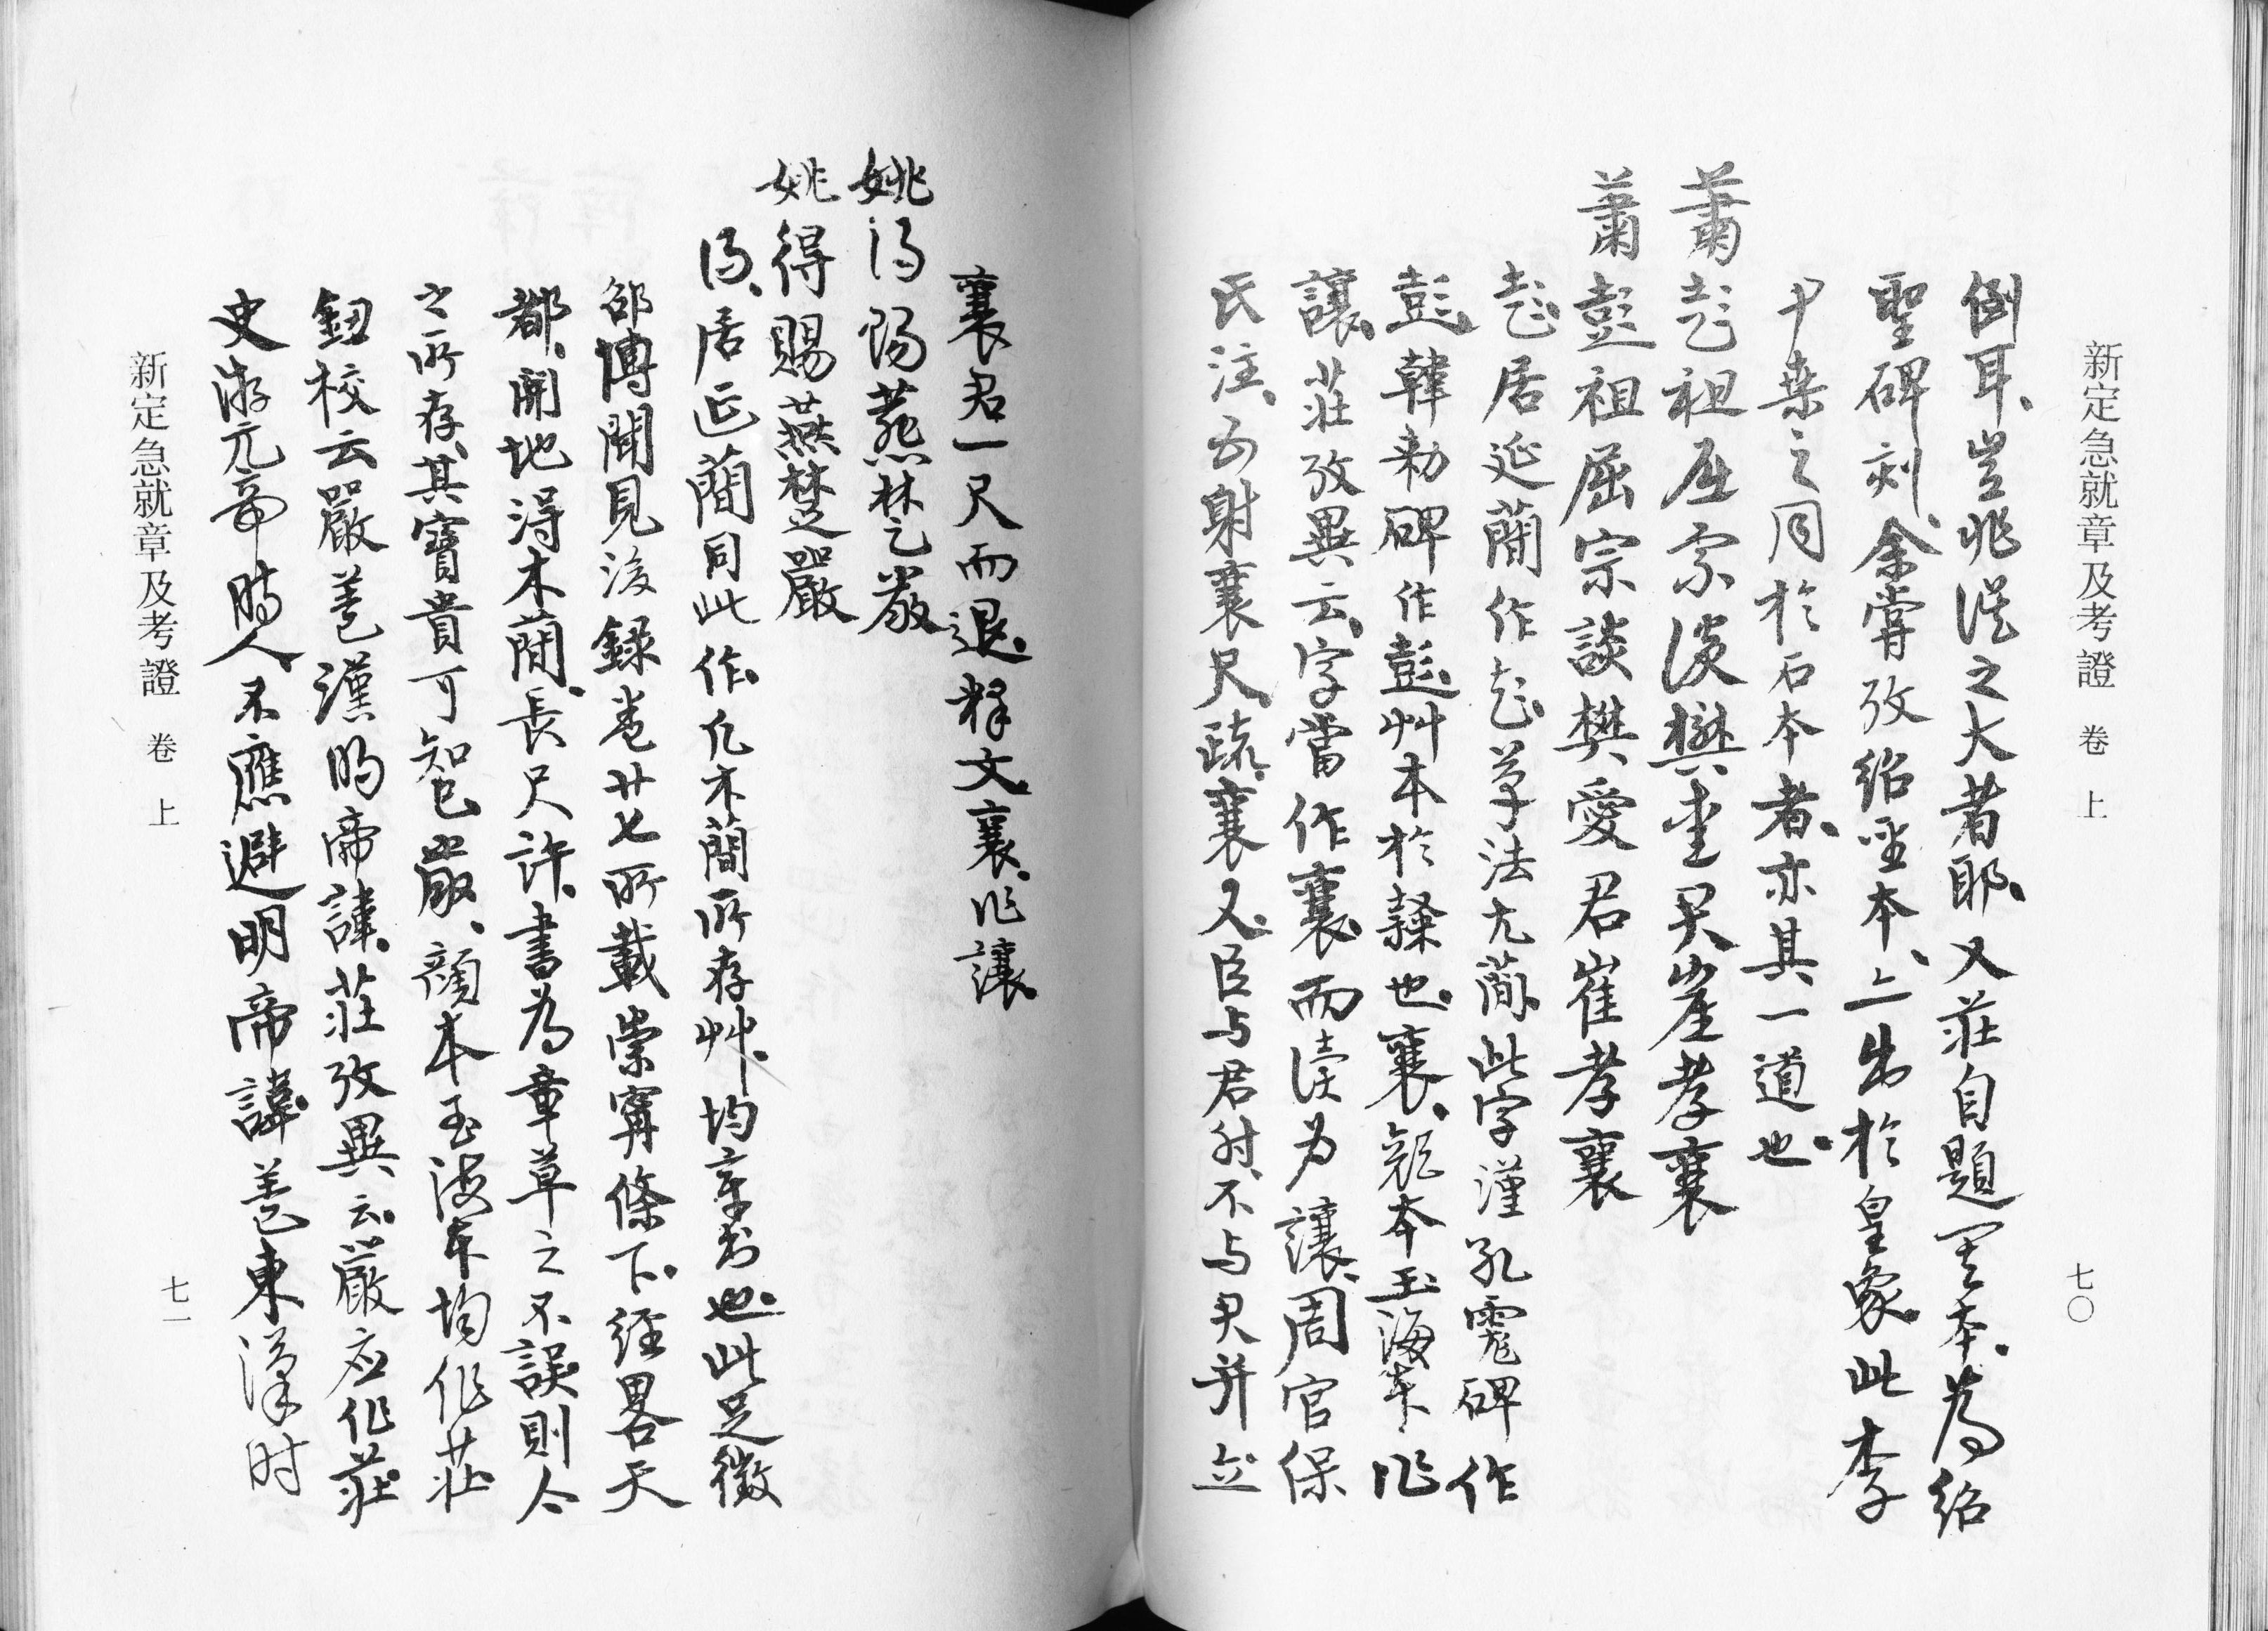 新定急就章及考證 卷上 七〇
倒耳、豈非误之大者耶、又莊自題
聖碑刻、余嘗攷紹聖本、上出於皇象、此李
尹桒之同於石本者、亦其一道也、
蕭彭祖屈宗談樊愛君崔孝襄
蕭彭祖屈宗談樊愛君崔孝襄
彭居延蕳作彭、草法尢蕳、此字漢孔宙碑作
彭、韓勑碑作彭、艸本於隸也、襄、顔本玉海本作
讓、莊攷異云、字當作襄、而读为讓、周官保
氏注、五射襄尺、疏、襄尺、臣与君射、不与君并立
襄君一尺而退、释文襄、作讓、
姚得賜燕楚嚴
姚得賜燕楚嚴
得、居延蕳同此作、凡木蕳所存艸、均章书也、此足徵
邵博聞見後録卷廿七所載崇寧條下、經畧天
都、開地得木蕳、長尺許、書為章草、之不誤、則今
之所存、其寶貴可知已、嚴、顔本玉海本均作莊
鈕校云嚴葢漢明帝諱、莊攷異云、嚴应作莊
史游元帝時人、不應避明帝諱、葢東漢时
新定急就章及考證 卷上 七一